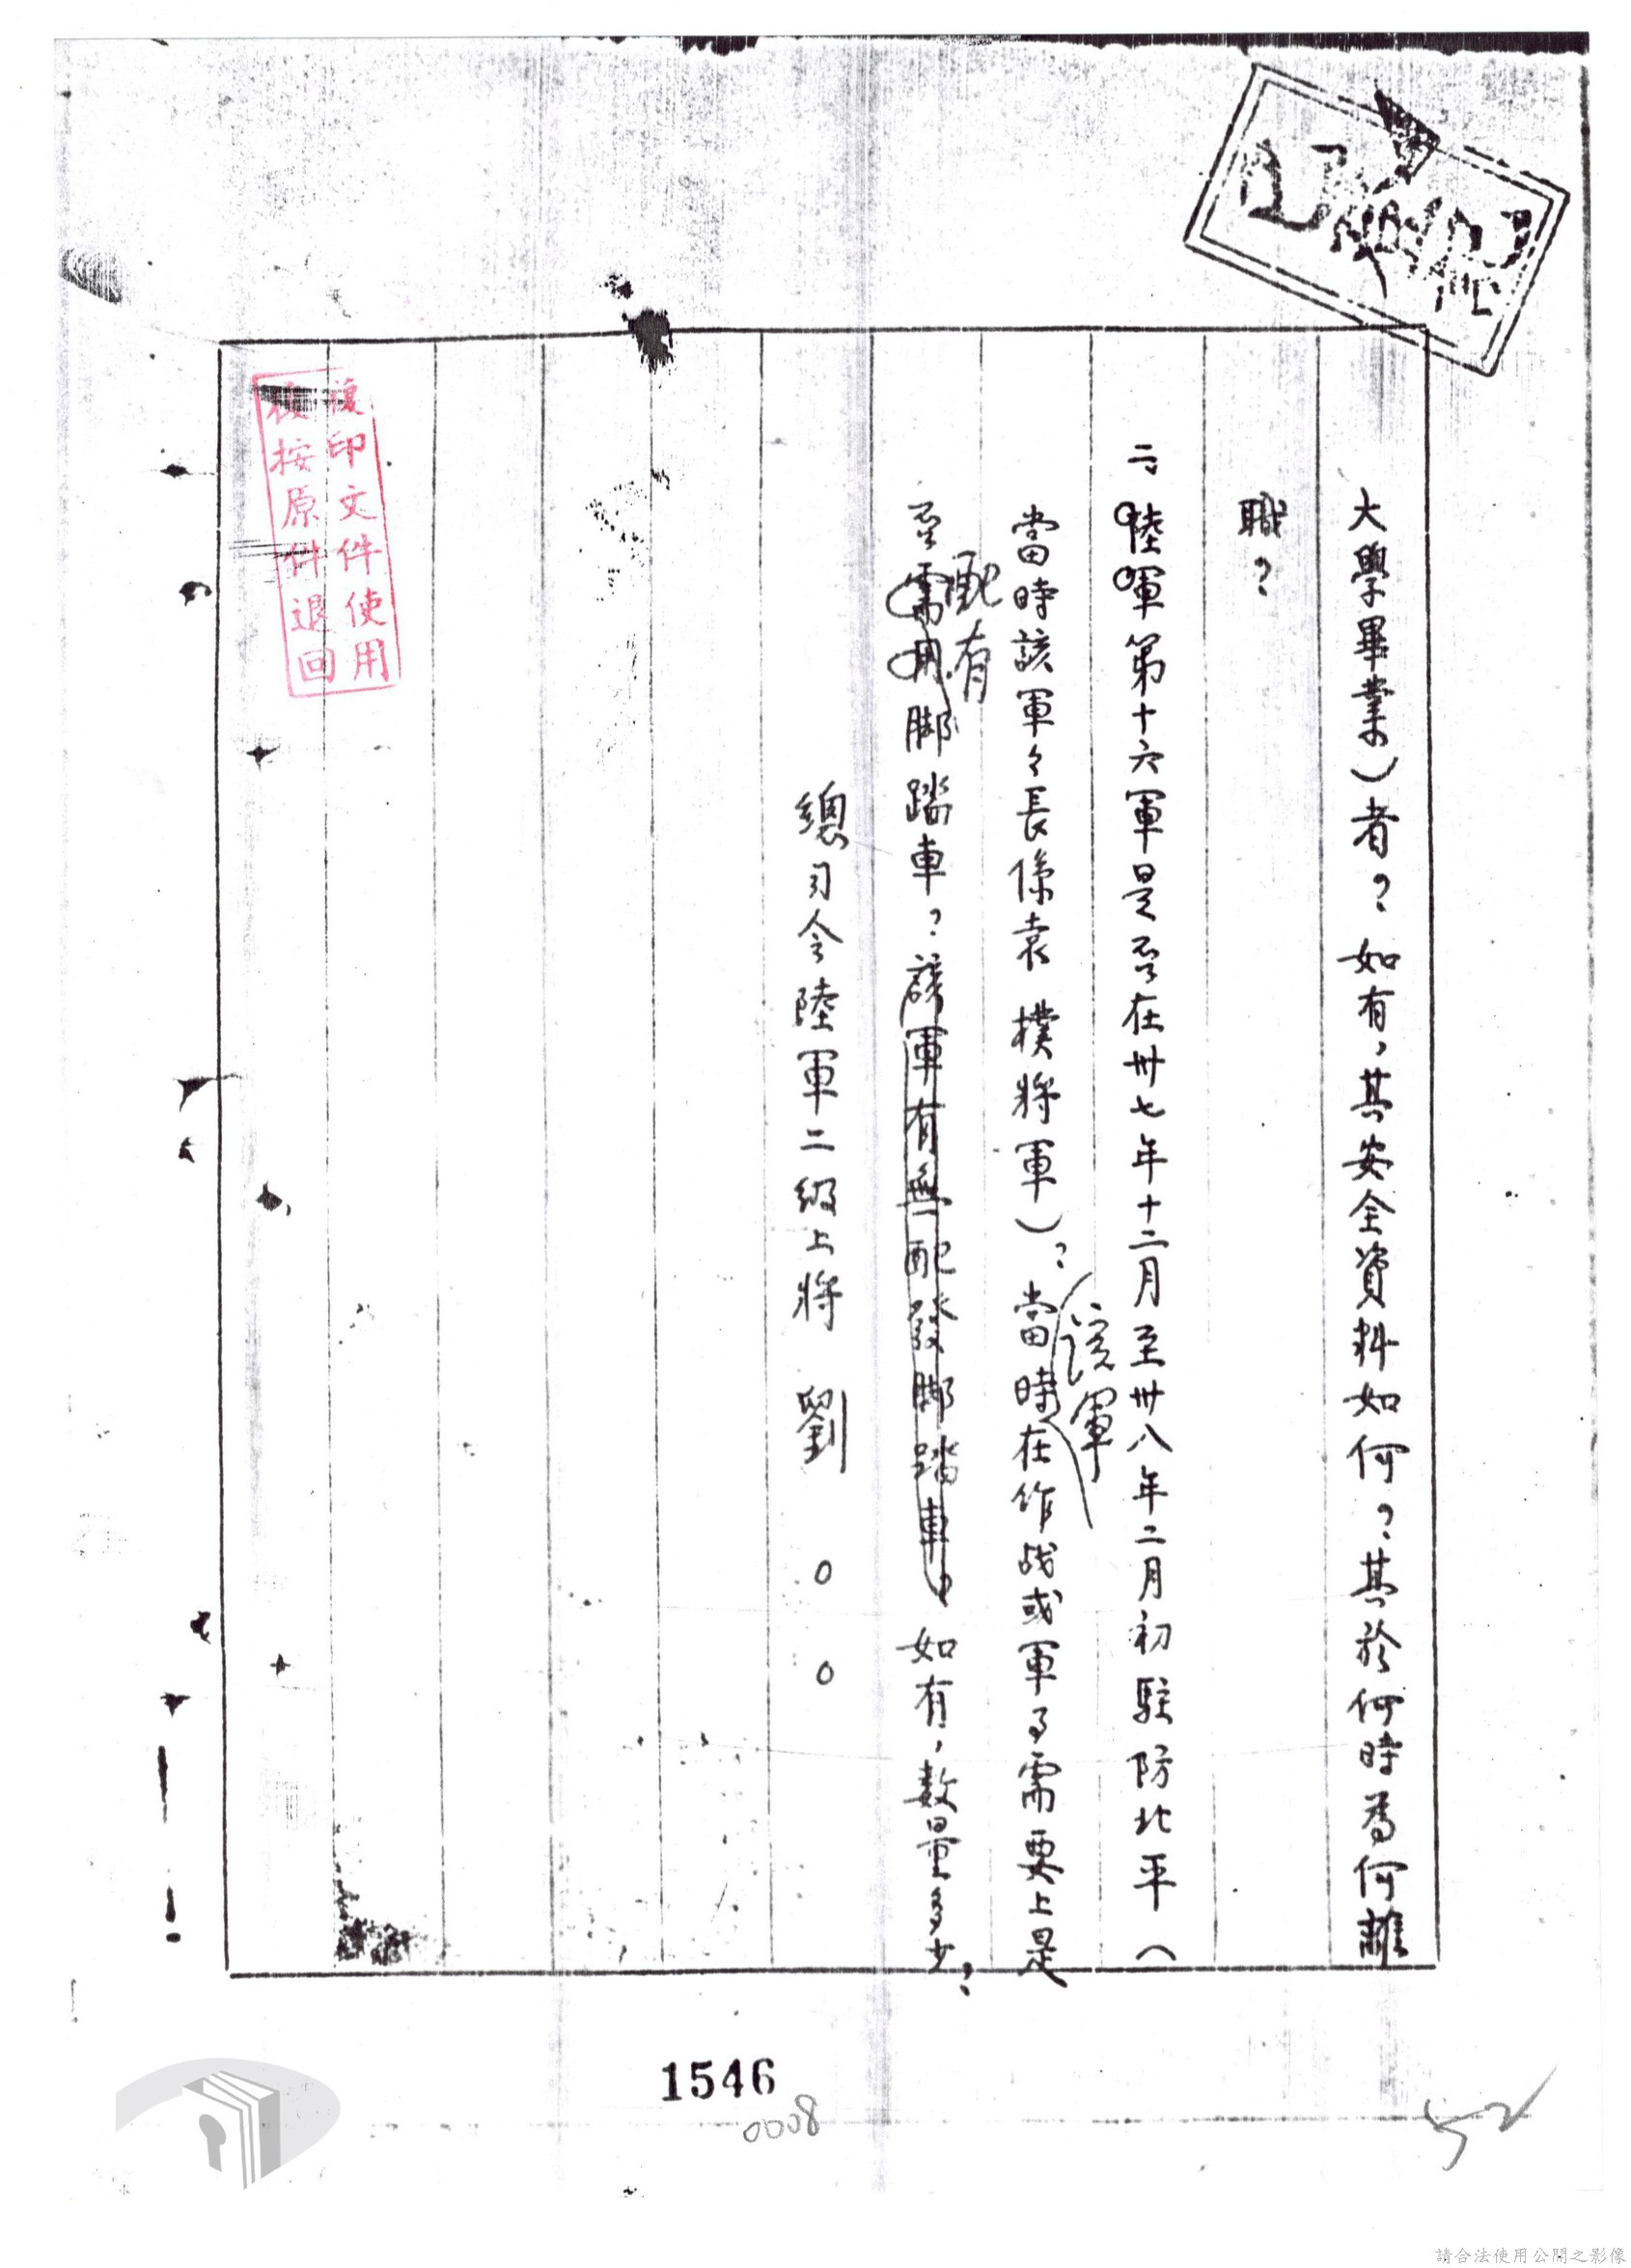 大學畢業）者？如有，其安全資料如何？其於何時為何離
職？
二、陸軍第十六軍是否在卅七年十二月至卅八年二月初駐防北平（
該軍
當時該軍々長係袁樸將軍）？當時在作战或軍事需要上是
配有
否需用脚踏車？該軍有無配發脚踏車，如有，数量多少？
總司令陸軍二級上將 劉○○
複印文件使用
後按原件退回
1546
0008
52
請合法使用公開之影像